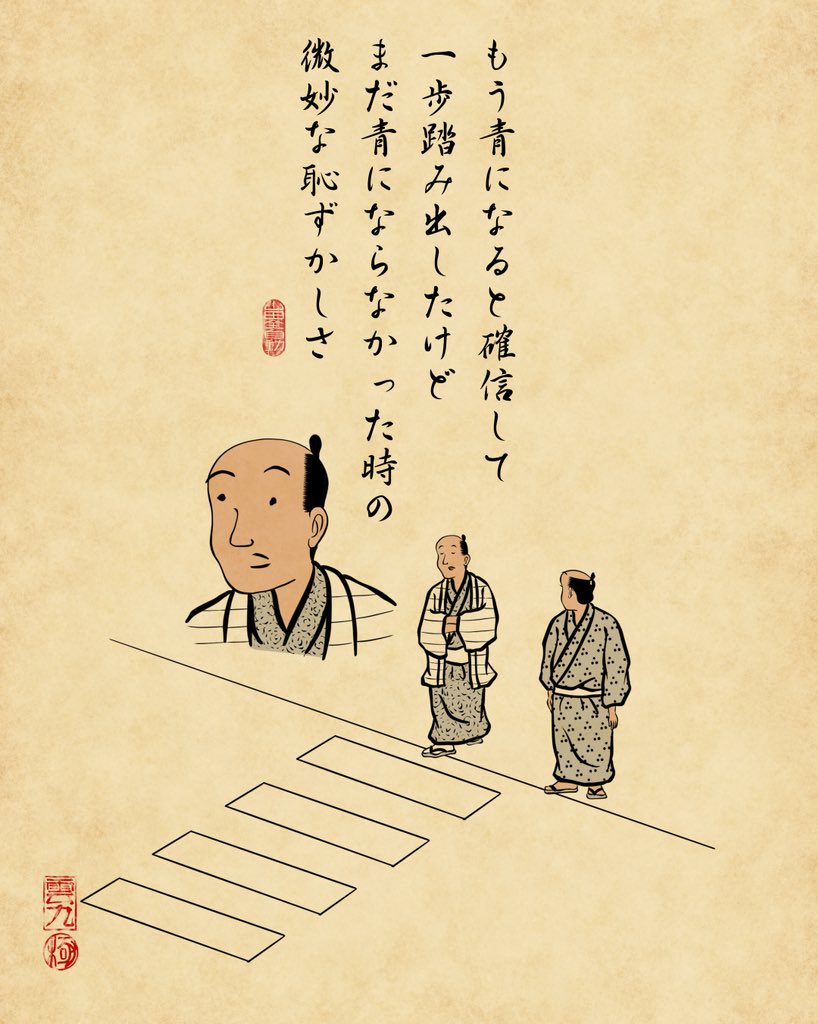 もう青になると確信して
一歩踏み出したけど
まだ青にならなかった時の
微妙な恥ずかしさ
山田全自動
雲九
極